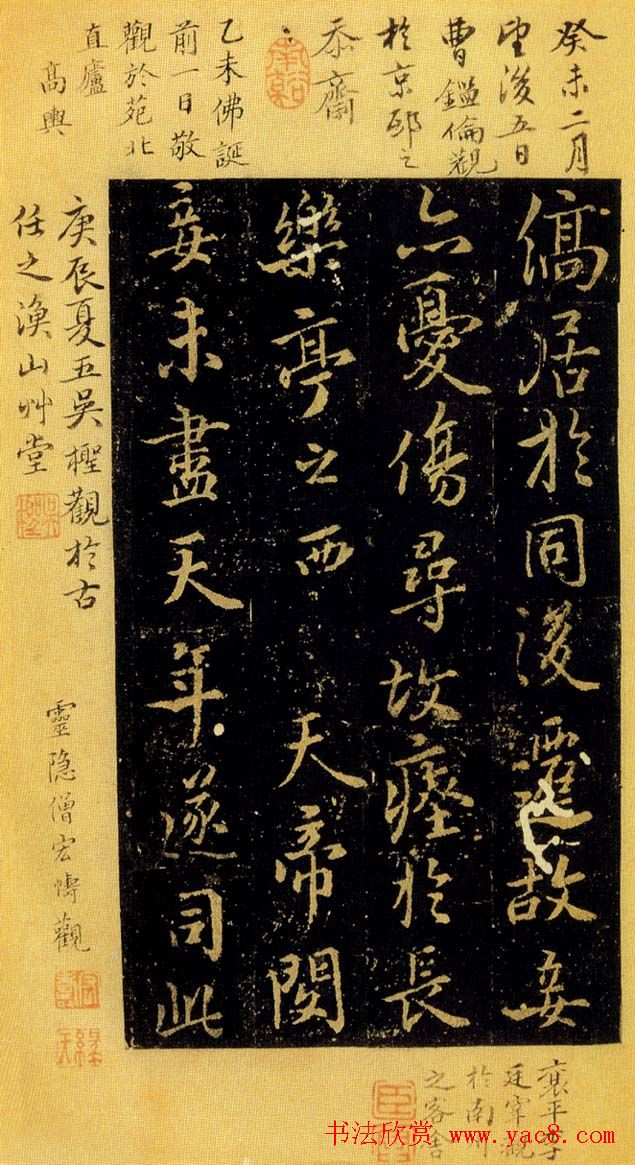 癸未二月
望後五日
曹鑑倫觀
於京邸之
忝齋
乙未佛誕
前一日敬
觀於苑北
直廬
高輿
縞居於同浚瀍故妾
亦憂傷尋故瘞於長
樂亭之西天帝閔
妾未盡天年遂司此
庚辰夏五吳檉觀於古
任之漁山艸堂
靈隱僧宏疇觀
襄平李
廷宰觀
於南州
之客舍
书法欣赏 www.yac8.com